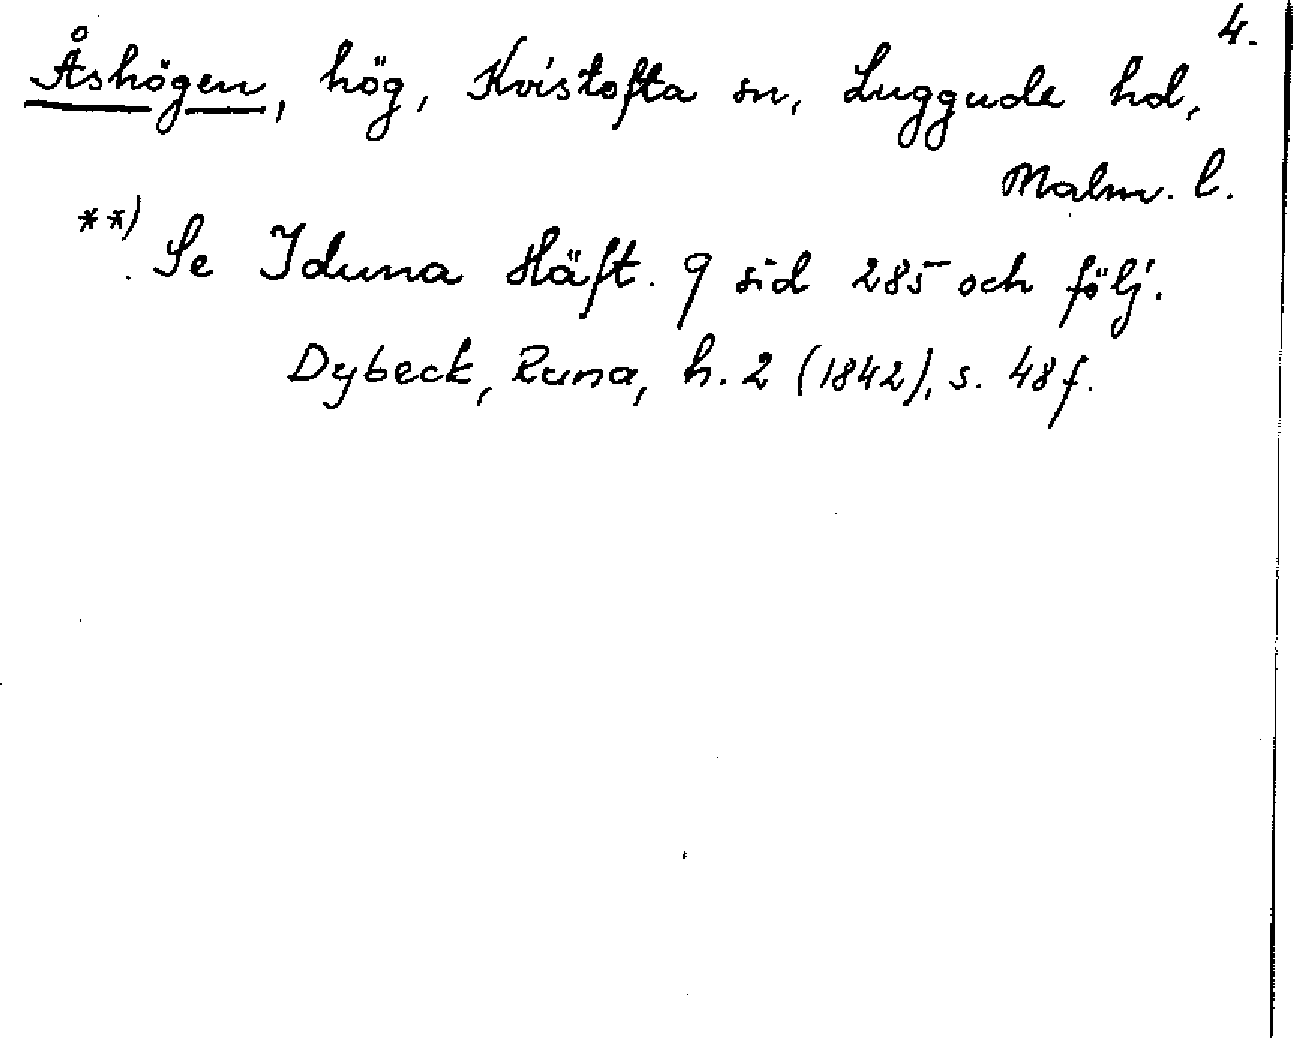 4.
Åshögen, hög, Kvistofta sn, Luggude hd,
Malm. l.
**) Se Iduna Häft. 9 sid 285 och följ.
Dybeck, Runa, h. 2 (1842), s. 48 f.